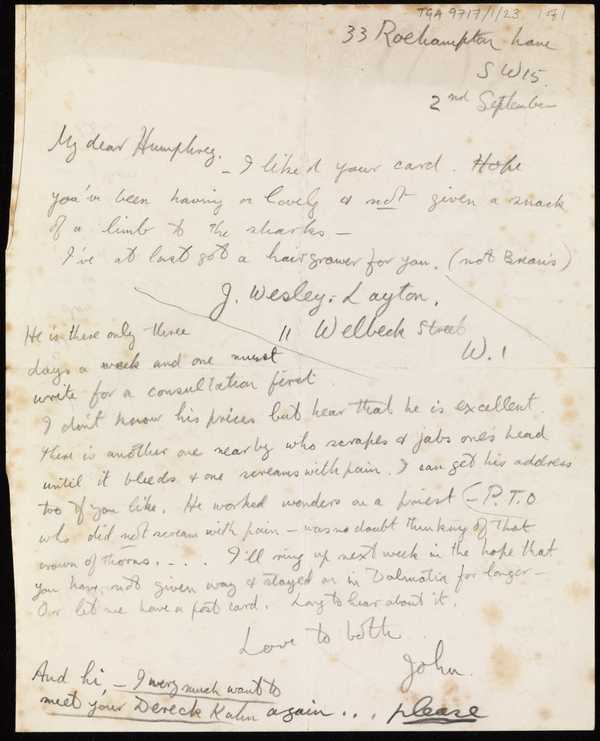 TGA 9717/1/23 1 of 1
33 Roehampton Lane
SW15.
2nd September
My dear Humphrey.
– I liked your card. Hope
you've been having a lovely & not given a snack
of a limb to the sharks –
I've at last got a hairgrower for you. (not Brian's)
J. Wesley-Layton.
11 Welbeck Street
W.1
He is there only three
days a week and one must
write for a consultation first
I don't know his prices but hear that he is excellent.
there is another one nearby who scrapes & jabs one's head
until it bleeds & one screams with pain. I can get his address
too if you like. He worked wonders on a priest – P.T.O
who did not scream with pain – was no doubt thinking of that
crown of thorns. . . . I'll ring up next week in the hope that
you have not given way & stayed on in Dalmatia for longer –
Or let me have a post card. Long to hear about it.
Love to both
John.
And hi, – I very much want to
meet your Dereck Kahn again... please